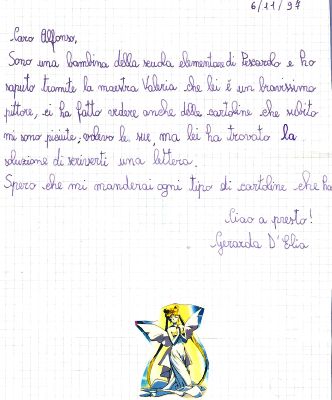 6/11/97
Caro Alfonso,
Sono una bambina della scuola elementare di Pescarolo e ho
saputo tramite la maestra Valeria che lei è un bravissimo
pittore, ci ha fatto vedere anche delle cartoline che subito
mi sono piaciute, volevo le sue, ma lei ha trovato la
soluzione di scriverti una lettera.
Spero che mi manderai ogni tipo di cartoline che ha
Ciao a presto!
Gerarda D'Elia